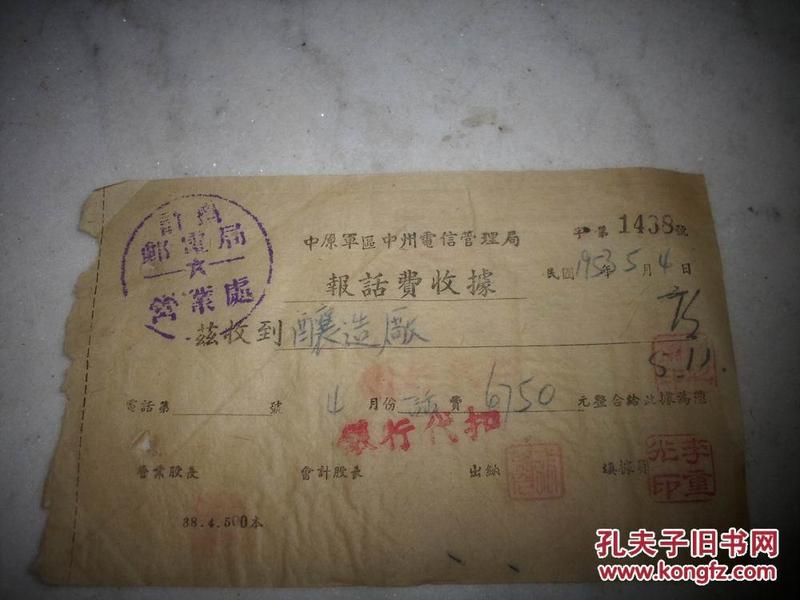 郵電局
營業處
中原軍區中州電信管理局
字第1438號
報話費收據
民國1953年5月4日
茲收到釀造廠
8.11.
電話第 號 4月份話費6750元整合給此據為憑
銀行代扣
營業股長 會計股長 出納 填據員
李重光印
38.4.500本
孔夫子旧书网
www.kongfz.com